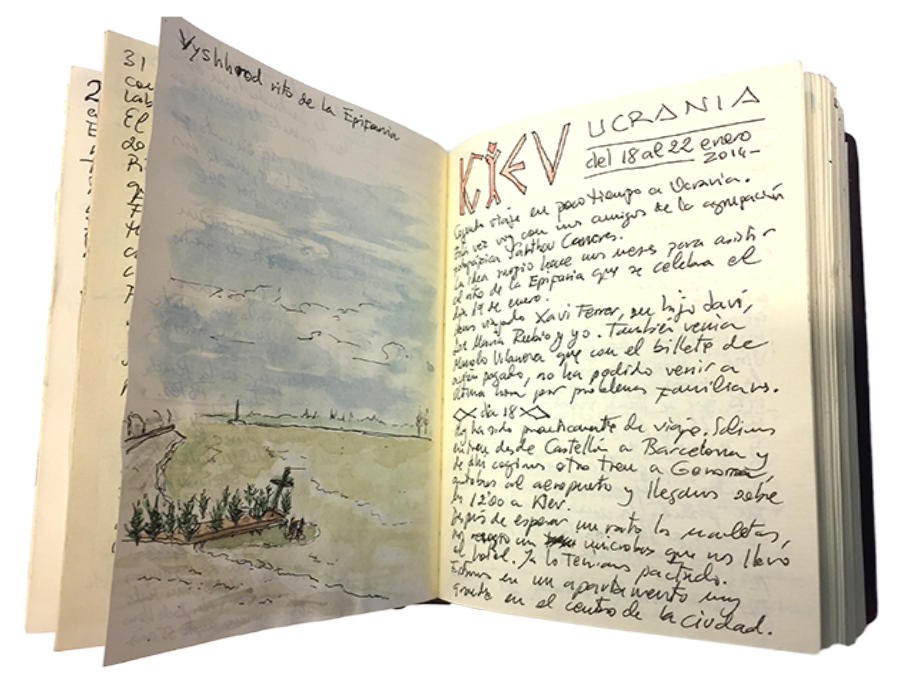 Vyshhorod rito de la Epifania
2
31
KIEV
UCRANIA
del 18 al 22 enero
2014-
Segundo viaje en poco tiempo a Ucrania.
Esta vez voy con mis amigos de la agrupación
fotográfica Sarthou Carreres.
La idea surgió hace unos meses para asistir
al rito de la Epifania que se celebra el
día 19 de enero.
Hemos viajado Xavi Ferrer, su hijo Javi,
Jose María Rubio y yo. También venía
Manolo Vilanova que con el billete de
avión pagado, no ha podido venir a
última hora por problemas familiares.
día 18
Hoy ha sido practicamente de viaje. Salimos
en tren desde Castellón a Barcelona y
de ahí cogimos otro tren a Gerona,
autobus al aeropuerto y llegamos sobre
las 12'00 a Kiev.
Después de esperar un rato las maletas,
nos recogió un microbus que nos llevó
al hotel. Ya lo teníamos pactado.
Estamos en un apartamento muy
grande en el centro de la ciudad.